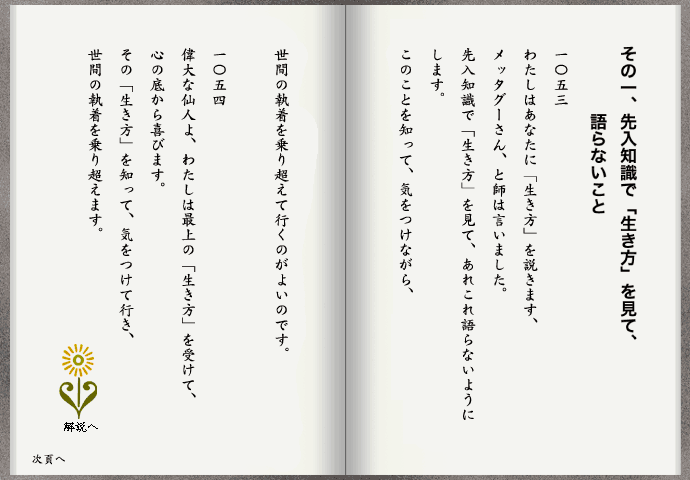 その一、先入知識で「生き方」を見て、
語らないこと
一〇五三
わたしはあなたに「生き方」を説きます、
メッタグーさん、と師は言いました。
先入知識で「生き方」を見て、あれこれ語らないように
します。
このことを知って、気をつけながら、
世間の執着を乗り超えて行くのがよいのです。
一〇五四
偉大な仙人よ、わたしは最上の「生き方」を受けて、
心の底から喜びます。
その「生き方」を知って、気をつけて行き、
世間の執着を乗り超えます。
解説へ
次頁へ